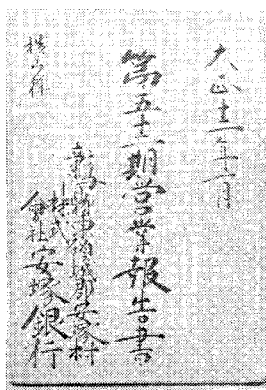 大正十二年 月
第五十二期営業報告書
新潟県東頸城郡安塚村
株式会社安塚銀行